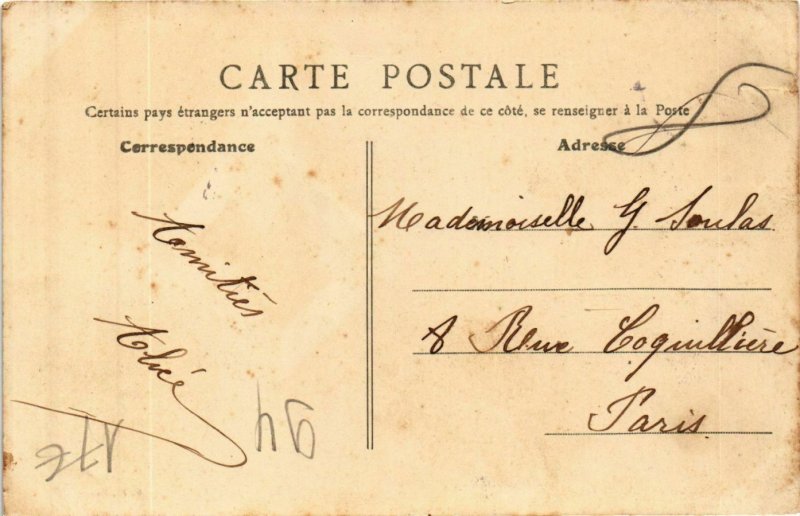 CARTE POSTALE
Certains pays étrangers n'acceptant pas la correspondance de ce côté, se renseigner à la Poste
Correspondance
Adresse
Amitiés
Mademoiselle G. Soulas
8 Rue Coquillière
Paris
94
176